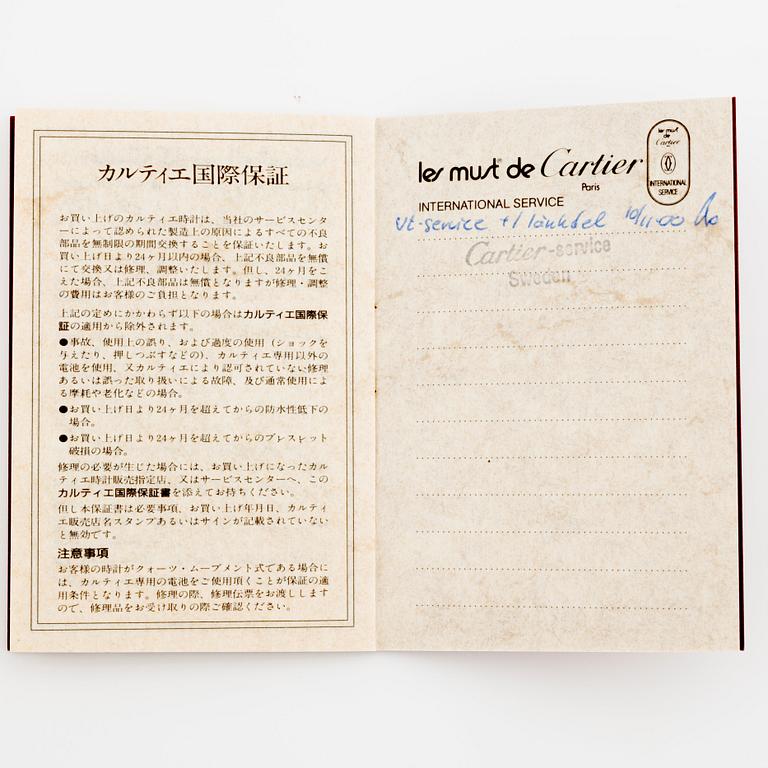 カルティエ国際保証
お買い上げのカルティエ時計は、当社のサービスセンタ
ーによって認められた製造上の原因によるすべての不良
部品を無制限の期間交換することを保証いたします。お
買い上げ日より24ヶ月以内の場合、上記不良部品を無償
にて交換又は修理、調整いたします。但し、24ヶ月をこ
えた場合、上記不良部品は無償となりますが修理・調整
の費用はお客様のご負担となります。
上記の定めにかかわらず以下の場合はカルティエ国際保
証の適用から除外されます。
●事故、使用上の誤り、および過度の使用（ショックを
与えたり、押しつぶすなどの）、カルティエ専用以外の
電池を使用、又カルティエにより認可されていない修理
あるいは誤った取り扱いによる故障、及び通常使用によ
る摩耗や老化などの場合。
●お買い上げ日より24ヶ月を超えてからの防水性低下の
場合。
●お買い上げ日より24ヶ月を超えてからのブレスレット
破損の場合。
修理の必要が生じた場合には、お買い上げになったカル
ティエ時計販売指定店、又はサービスセンターへ、この
カルティエ国際保証書を添えてお持ちください。
但し本保証書は必要事項、お買い上げ年月日、カルティ
エ販売店名スタンプあるいはサインが記載されていない
と無効です。
注意事項
お客様の時計がクォーツ・ムーブメント式である場合に
は、カルティエ専用の電池をご使用頂くことが保証の適
用条件となります。修理の際、修理伝票をお渡しします
ので、修理品をお受け取りの際ご確認ください。
les must de Cartier
Paris
les must
de
Cartier
INTERNATIONAL
SERVICE
INTERNATIONAL SERVICE
vt-service +1 länkdel 10/11-00
Cartier-service
Sweden